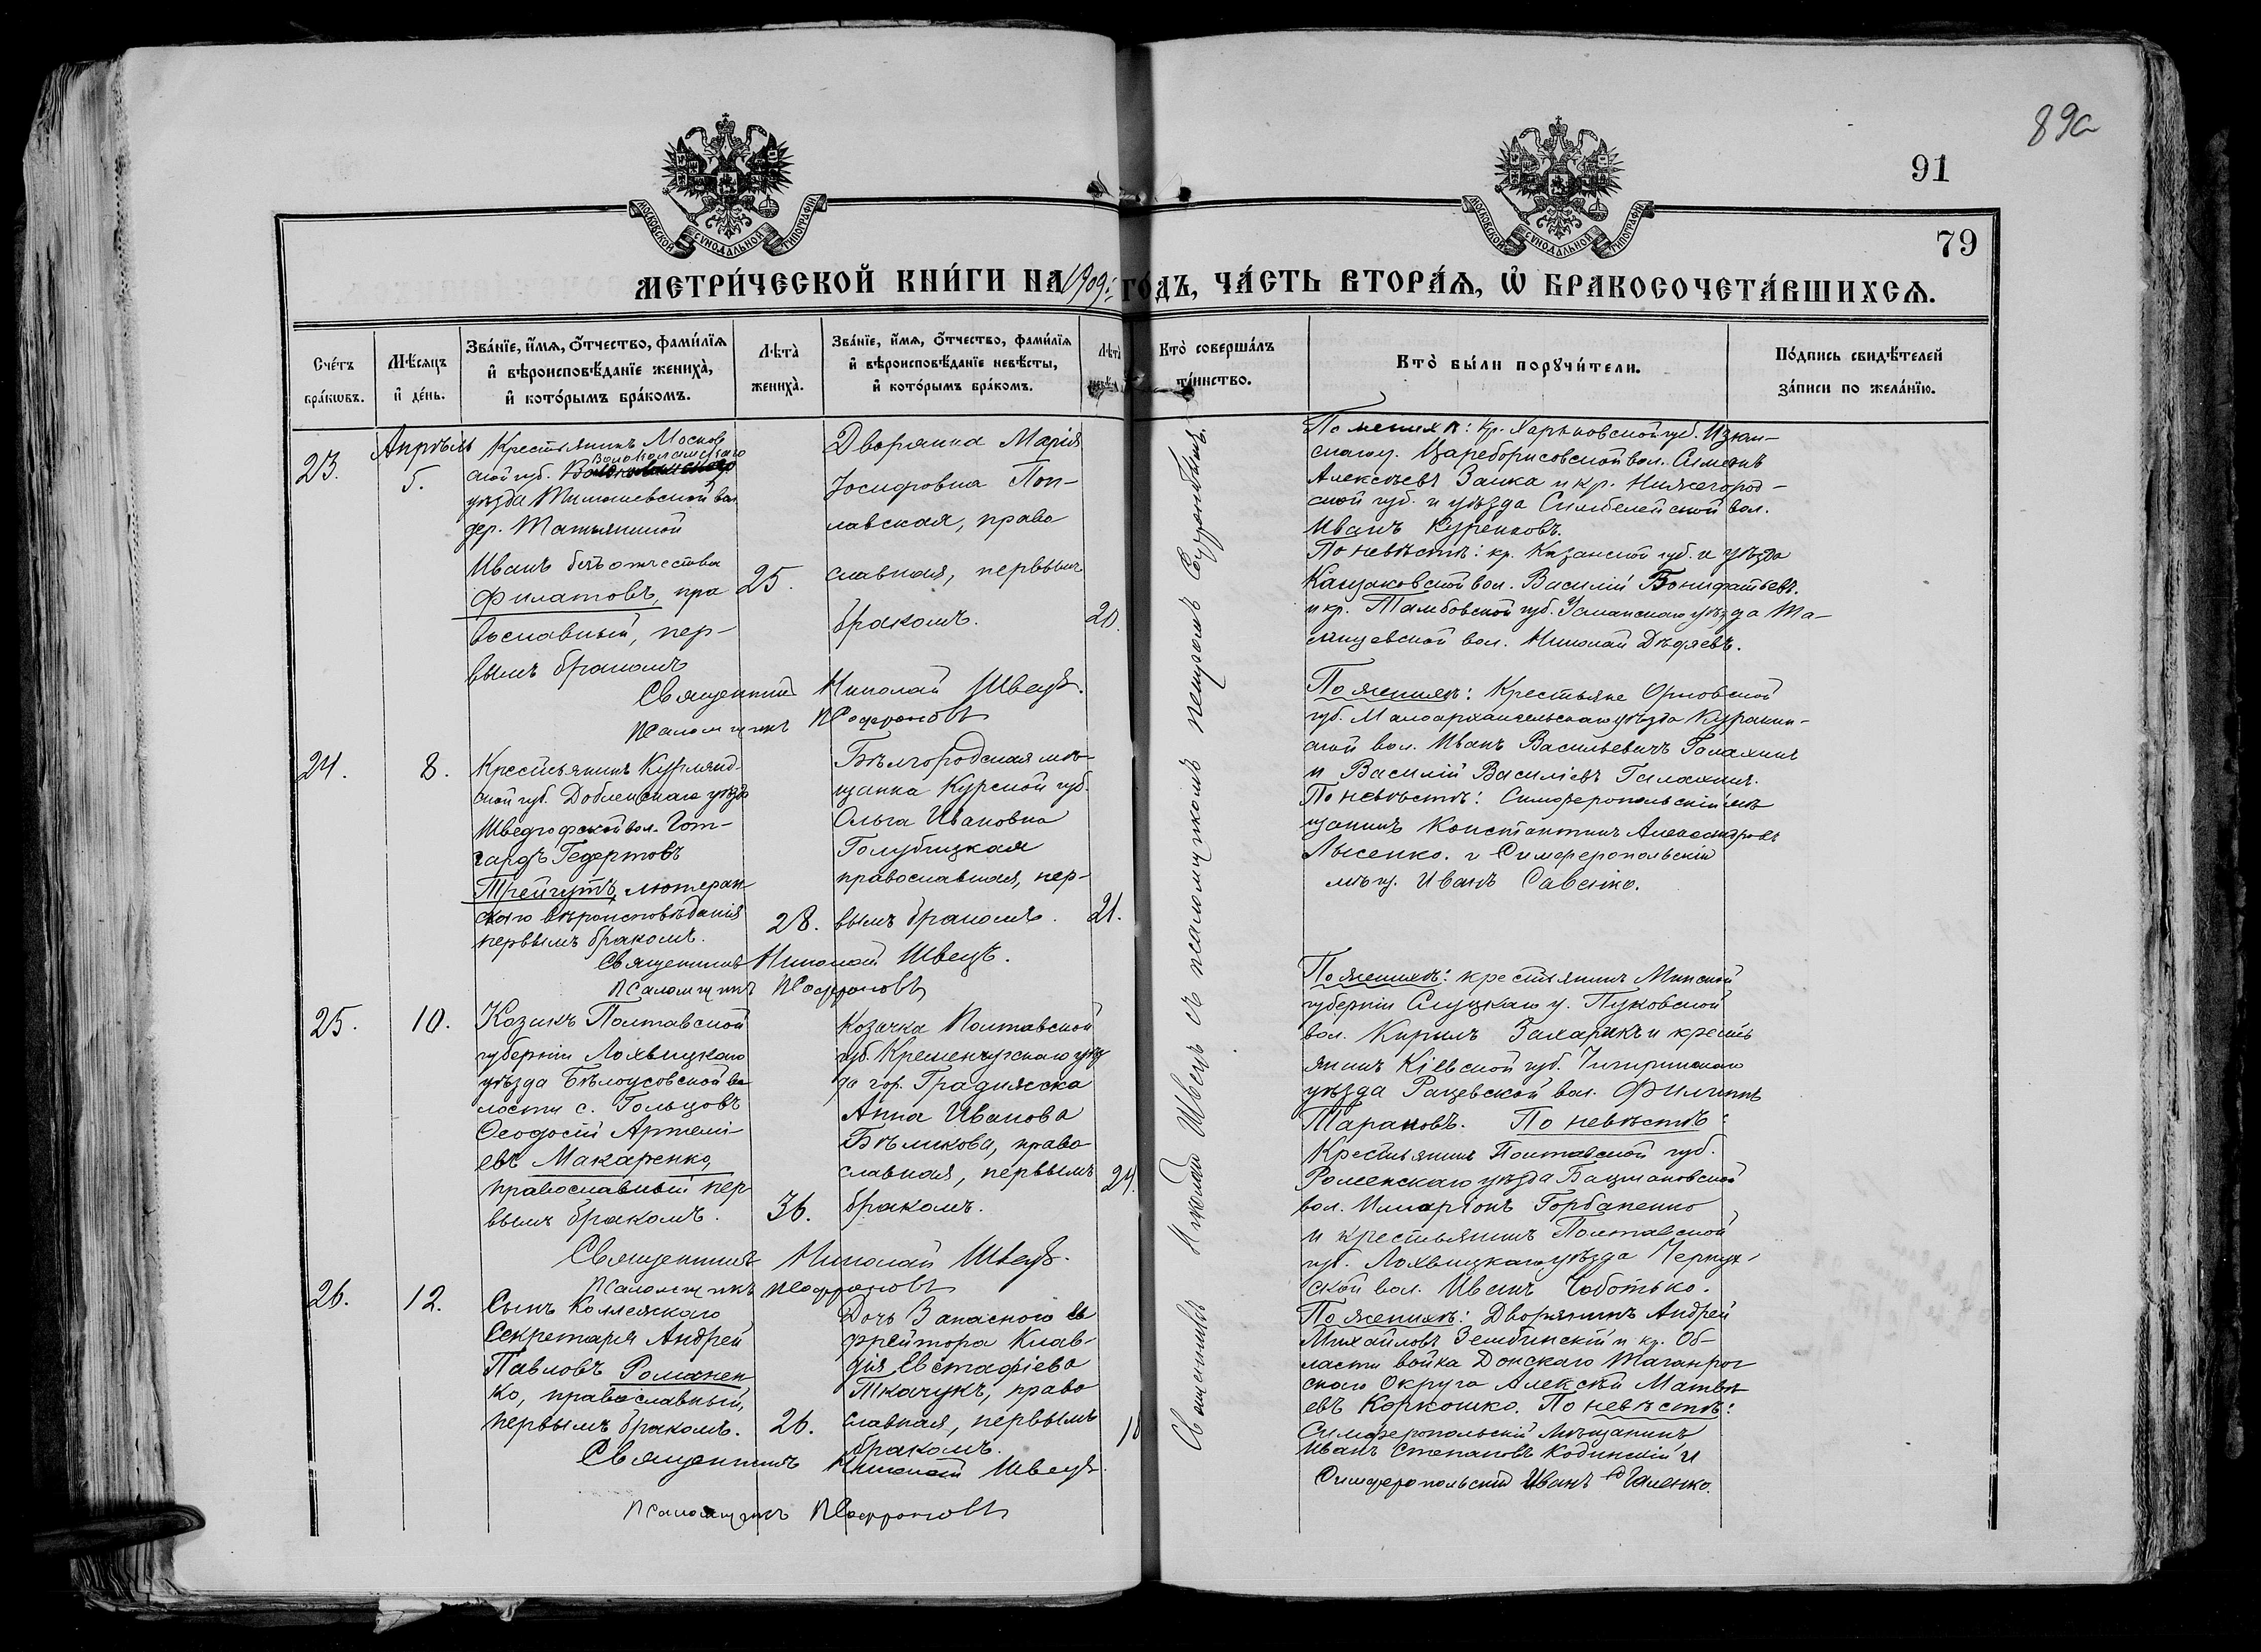 89а
91
79
МОСКОВСКОЙ СУНОДАЛЬНОЙ ТИПОГРАФІИ
МОСКОВСКОЙ СУНОДАЛЬНОЙ ТИПОГРАФІИ
МЕТРИ́ЧЕСКОЙ КНИ́ГИ НА 1909 г. ГО́ДЪ, ЧА́СТЬ ВТОРА́Ѧ, Ѡ҆ БРАКОСОЧЕТА́ВШИХСѦ.
Сче́тъ бра́кѡвъ.
Мѣ́сѧцъ и҆ де́нь.
Зва́нїе, и҆́мѧ, ѻ҆́тчество, фами́лїѧ и҆ вѣроисповѣ́данїе жениха̀, и҆ кото́рымъ бра́комъ.
Лѣта̀ жениха̀.
Зва́нїе, и҆́мѧ, ѻ҆́тчество, фами́лїѧ и҆ вѣроисповѣ́данїе невѣ́сты, и҆ кото́рымъ бра́комъ.
Лѣта̀
Кто̀ соверша́лъ та́инство.
Кто̀ бы́ли порꙋчи́тели.
По́дпись свидѣ́телей за́писи по жела́нїю.
23.
Апрѣль
5.
Крестьянинъ Москов
ской губ. Волоколамскаго
уѣзда Тимошевской вол
дер. Матюшиной
Иванъ безъ отчества
Филатовъ, пра
вославный, пер-
вымъ бракомъ
25.
Дворянка Марія
Іосифовна Поп-
лавская, право
славная, первымъ
бракомъ.
20.
Священникъ Николай Швецъ.
Псаломщикъ ПСофроновъ
По женихѣ: кр. Харьковской губ. Изюм-
скаго у. Цареборисовской вол. Симеонъ
Алексѣевъ Заика и кр. Нижегород-
ской губ. и уѣзда Симбелейской вол.
Иванъ Куренковъ.
По невѣстѣ: кр. Казанской губ. и уѣзда
Кащаковской вол. Василій Бонифатьевъ.
и кр. Тамбовской губ. Усманскаго уѣзда
вол. Николай Дѣдяевъ.
24.
8.
Крестьянинъ Курлянд-
ской губ. Добленскаго уѣзда
Шведгофской вол. Гот-
гардъ Гедертовъ
Трейгутъ, лютеран
скаго вѣроисповѣданія
первымъ бракомъ.
28.
Бѣлгородская мѣ-
щанка Курской губ.
Ольга Ивановна
Голубицкая
православная, пер-
вымъ бракомъ.
21.
Священникъ Николай Швецъ.
Псаломщикъ ПСофроновъ
По женихѣ: Крестьяне Орловской
губ. Малоархангельскаго уѣзда Куракин-
ской вол. Иванъ Васильевичъ Галахинъ
и Василій Василіевъ Галахинъ.
По невѣстѣ: Симферопольскій мѣ
щанинъ Константинъ Александровъ
Лысенко. и Симферопольскій
мѣщ. Иванъ Савенко.
25.
10.
Козакъ Полтавской
губерніи Лохвицкаго
уѣзда Бѣлоусовской во
лости с. Гольцовъ
Ѳеодосій Артемі-
евъ Макаренко,
православный пер
вымъ бракомъ.
36.
Козачка Полтавской
губ. Кременчугскаго уѣз
да гор. Градижска
Анна Иванова
Бѣликова, право
славная, первымъ
бракомъ.
24.
Священникъ Николай Швецъ.
Псаломщикъ ПСофроновъ
По женихѣ: крестьянинъ Минской
губерніи Слуцкаго у. Пуковской
вол. Кирилъ Захарикъ и кресть
янинъ Кіевской губ. Чигиринскаго
уѣзда Рацевской вол. Филиппъ
Тарановъ. По невѣстѣ:
Крестьянинъ Полтавской губ.
Роменскаго уѣзда Бацмановской
вол. Иларіонъ Горбаненко
и крестьянинъ Полтавской
губ. Лохвицкаго уѣзда Чернух-
ской вол. Иванъ Чоботько.
26.
12.
Сынъ Коллежскаго
Секретаря Андрей
Павловъ Романен
ко, православный,
первымъ бракомъ.
26.
Дочь Запаснаго Еф
фрейтора Клав-
дія Евстафіева
Ткачукъ, право
славная, первымъ
бракомъ.
18
Священникъ Николай Швецъ.
Псаломщикъ ПСофроновъ
По женихѣ: Дворянинъ Андрей
Михайловъ Зембинскій и кр. Об-
ласти войка Донскаго Таганрог
скаго Округа Алексѣй Матвѣ
евъ Коркошко. По невѣстѣ:
Симферопольскій Мѣщанинъ
Иванъ Степановъ Кодинскій и
Симферопольскій Иванъ Галенко.
Священникъ Николай Швецъ съ псаломщикомъ Петромъ Софроновымъ.